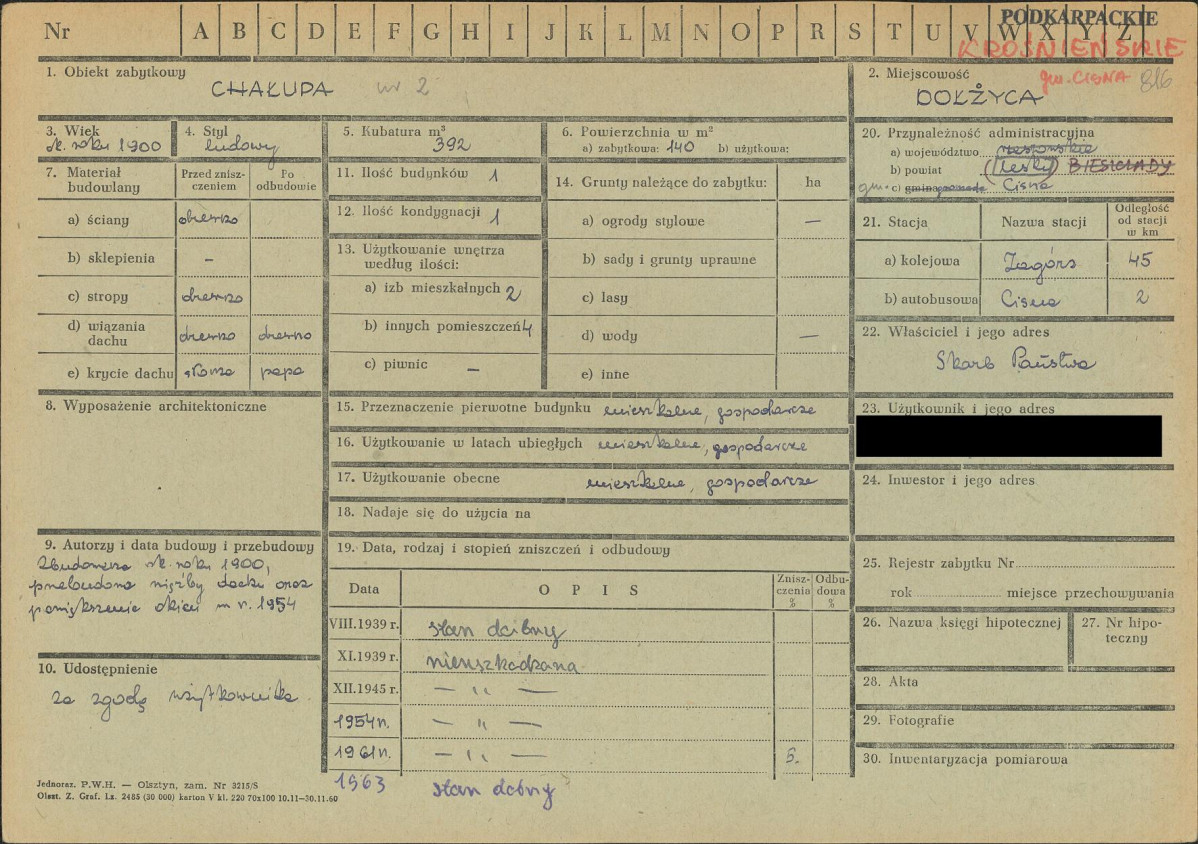 Nr A B C D E F G H I J K L M N O P R S T U V W X Y Z
PODKARPACKIE
KROŚNIEŃSKIE
gm. CISNA 816
1. Obiekt zabytkowy
CHAŁUPA nr 2
2. Miejscowość
DOŁŻYCA
3. Wiek
ok. roku 1900
4. Styl
ludowy
5. Kubatura m³
392
6. Powierzchnia w m²
a) zabytkowa: 140 b) użytkowa:
7. Materiał budowlany
Przed zniszczeniem
Po odbudowie
a) ściany drewno
b) sklepienia –
c) stropy drewno
d) wiązania dachu drewno drewno
e) krycie dachu słoma papa
8. Wyposażenie architektoniczne
9. Autorzy i data budowy i przebudowy
Zbudowana ok. roku 1900,
przebudowa więźby dachu oraz
powiększenie okien w r. 1954
10. Udostępnienie
za zgodą użytkownika
11. Ilość budynków 1
12. Ilość kondygnacji 1
13. Użytkowanie wnętrza
według ilości:
a) izb mieszkalnych 2
b) innych pomieszczeń 4
c) piwnic –
14. Grunty należące do zabytku: ha
a) ogrody stylowe –
b) sady i grunty uprawne
c) lasy
d) wody –
e) inne
15. Przeznaczenie pierwotne budynku mieszkalne, gospodarcze
16. Użytkowanie w latach ubiegłych mieszkalne, gospodarcze
17. Użytkowanie obecne mieszkalne, gospodarcze
18. Nadaje się do użycia na
19. Data, rodzaj i stopień zniszczeń i odbudowy
Data OPIS Zniszczenia % Odbudowa %
VIII.1939 r. stan dobry
XI.1939 r. nieuszkodzona
XII.1945 r. — " —
1954 r. — " —
1961 r. — " —
1963 stan dobry
20. Przynależność administracyjna
a) województwo rzeszowskie
b) powiat Lesko BIESZCZADY
gm. c) gmina gromada Cisna
21. Stacja Nazwa stacji Odległość od stacji w km
a) kolejowa Zagórz 45
b) autobusowa Cisna 2
22. Właściciel i jego adres
Skarb Państwa
23. Użytkownik i jego adres
24. Inwestor i jego adres
25. Rejestr zabytku Nr
rok miejsce przechowywania
26. Nazwa księgi hipotecznej
27. Nr hipoteczny
28. Akta
29. Fotografie
30. Inwentaryzacja pomiarowa
Jednoraz. P.W.H. — Olsztyn, zam. Nr 3215/S
Olszt. Z. Graf. Lz. 2485 (30 000) karton V kl. 220 70x100 10.11—30.11.60